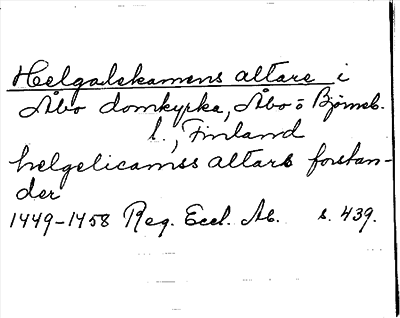 Helgalekamens altare i
Åbo domkyrka, Åbo o Björneb.
l., Finland
helgelicamss altars forstan-
der
1449-1458 Reg. Eccl. Ab. s. 439.